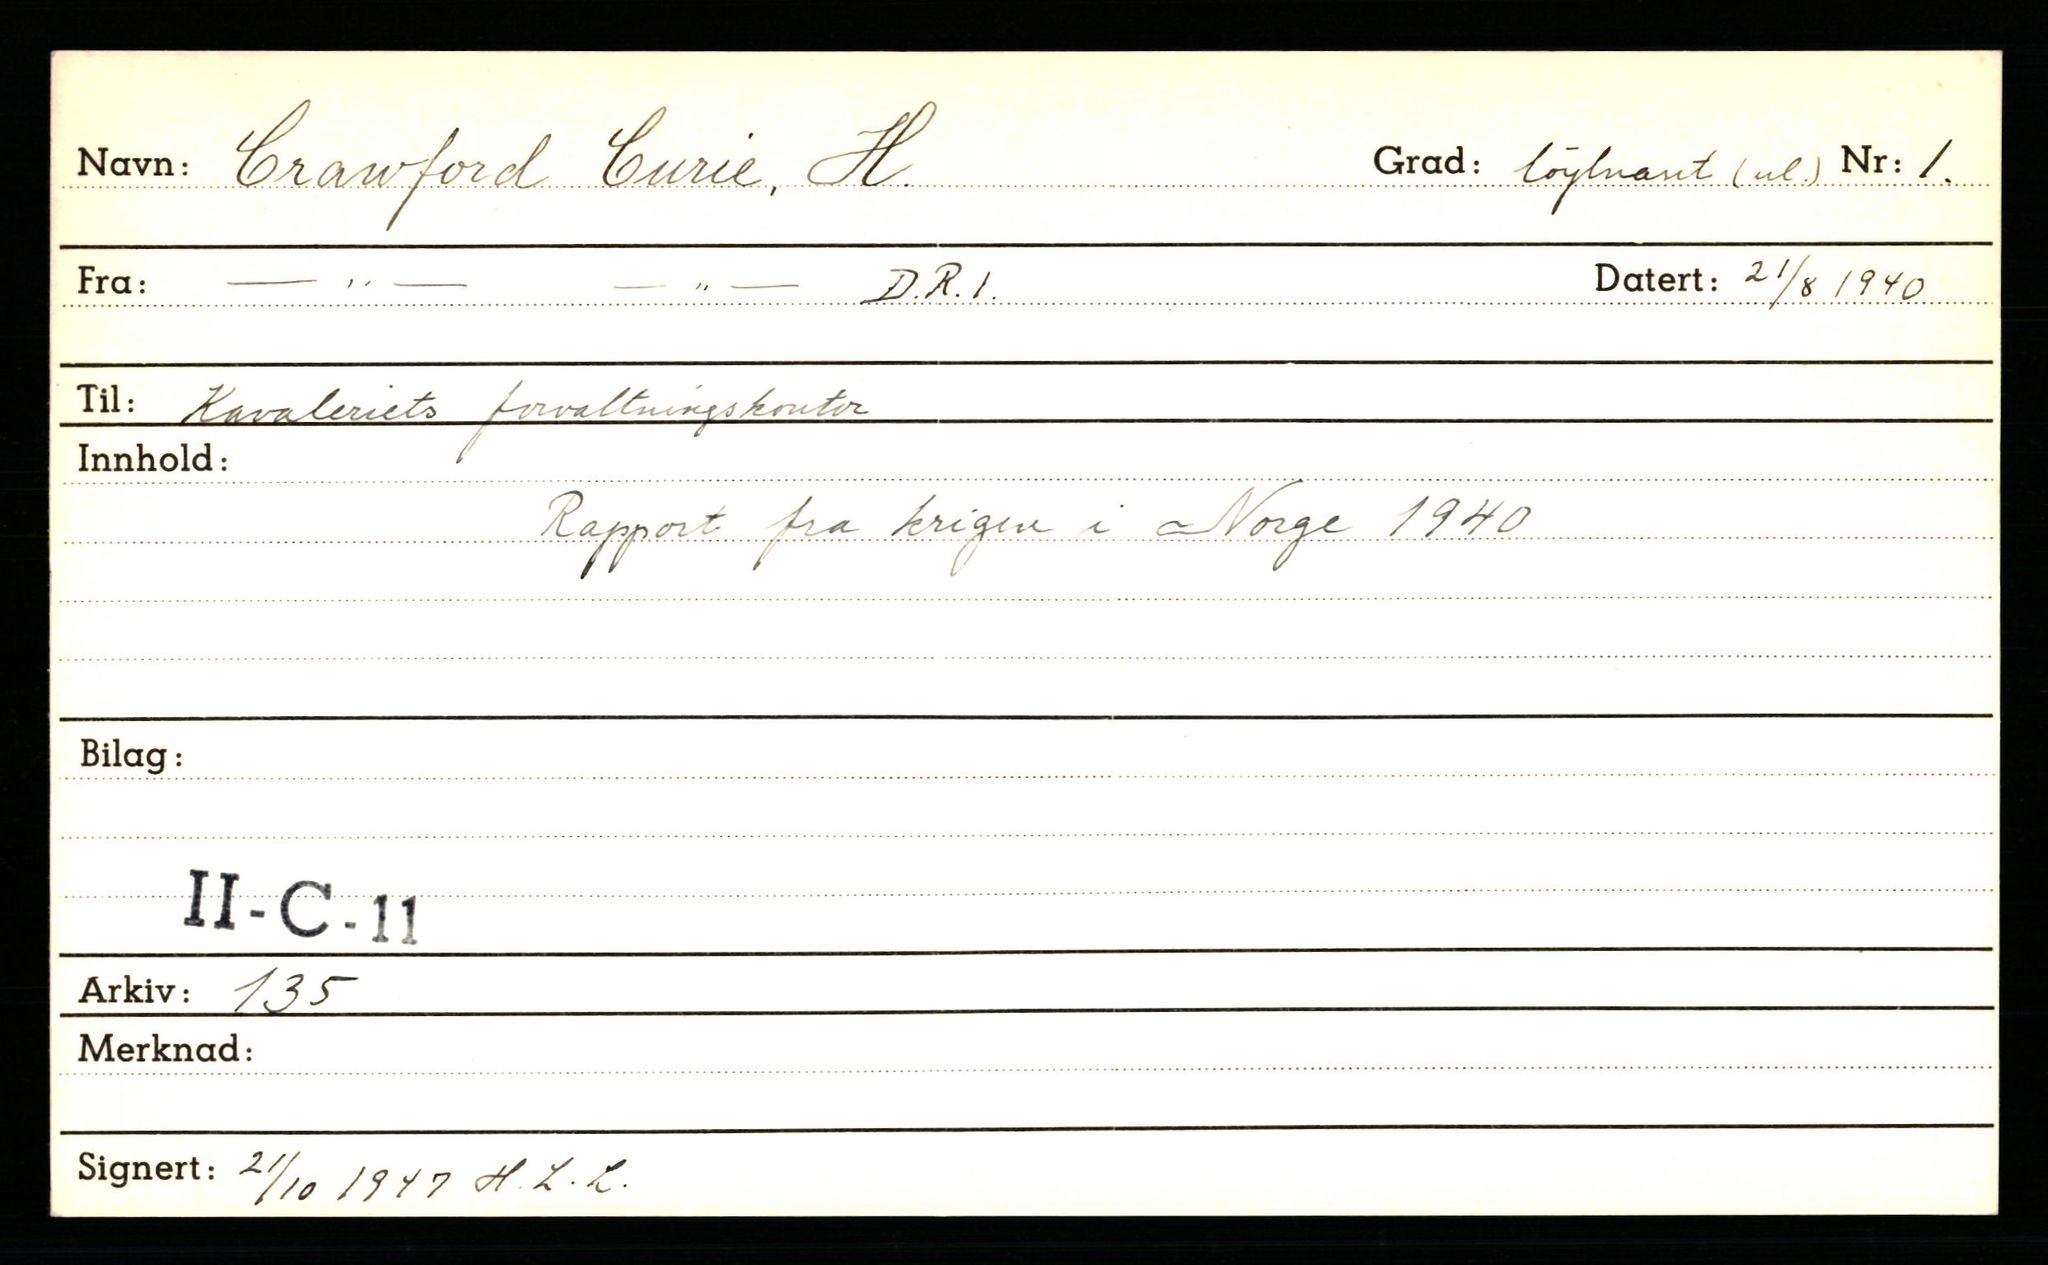 Navn: Crawford Curie, H. Grad: löytnant (ul.) Nr: 1.
Fra: — " — — " — D.R.1. Datert: 21/8 1940
Til: Kavaleriets forvaltningskontor
Innhold:
Rapport fra krigen i Norge 1940
Bilag:
II-C-11
Arkiv: 135
Merknad:
Signert: 21/10 1947 H.L.L.